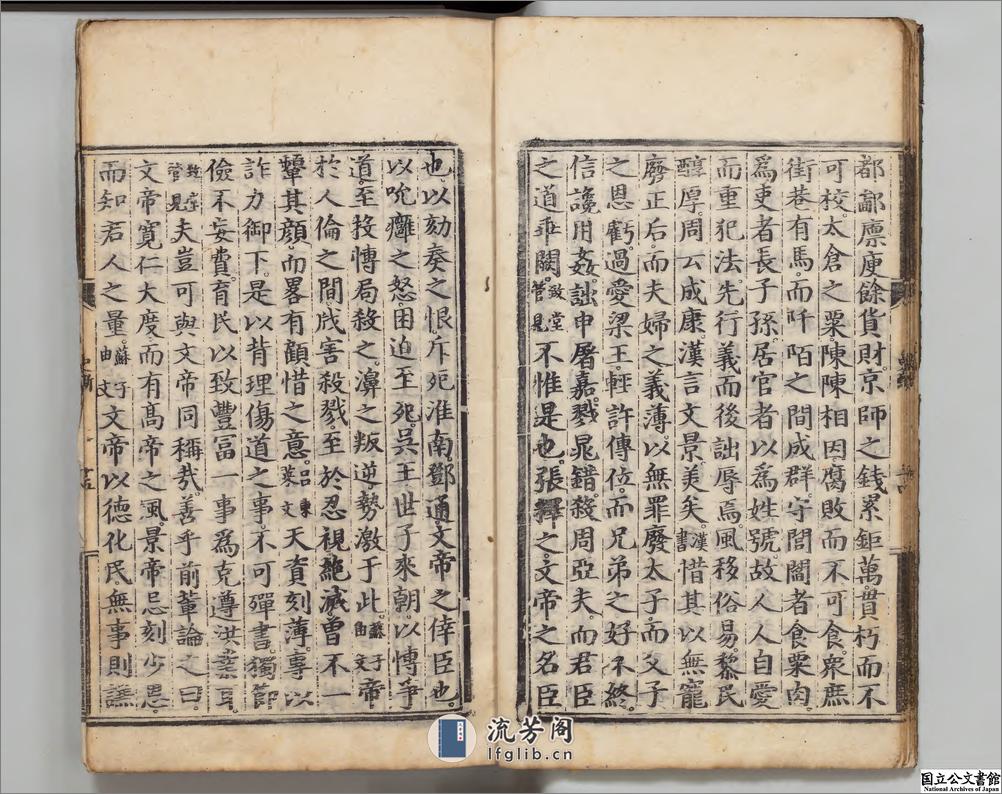 都鄙廪庾餘貨財京師之錢累鉅萬貫朽而不
可校太倉之粟陳陳相因腐敗而不可食衆庶
街巷有馬而阡陌之間成群守閭閻者食粟肉
爲吏者長子孫居官者以爲姓號故人人自愛
而重犯法先行義而後詘辱焉風移俗易黎民
醇厚周云成康漢言文景美矣漢書惜其以無寵
廢正后而夫婦之義薄以無罪廢太子而父子
之恩虧過愛梁王輕許傳位而兄弟之好不終
信讒用姦詘申屠嘉戮晁錯殺周亞夫而君臣
之道乖闕致堂管見不惟是也張釋之文帝之名臣
也以劾奏之恨斥死淮南鄧通文帝之倖臣也
以吮癰之怒困迫至死吳王世子來朝以愽爭
道至投愽局殺之濞之叛逆勢激于此蘇子由文帝
於人倫之間戕害殺戮至於忍視絶滅曽不一
顰其顔而畧有顧惜之意呂東萊文天資刻薄專以
詐力御下是以背理傷道之事不可殫書獨節
儉不妄費育民以致豐冨一事爲克遵洪業耳
致堂管見夫豈可與文帝同稱㦲善乎前董論之曰
文帝寛仁大度而有髙帝之風景帝忌刻少恩
而知君人之量蘇子由文文帝以德化民無事則謙
流芳阁
lfglib.cn
国立公文書館
National Archives of Japan